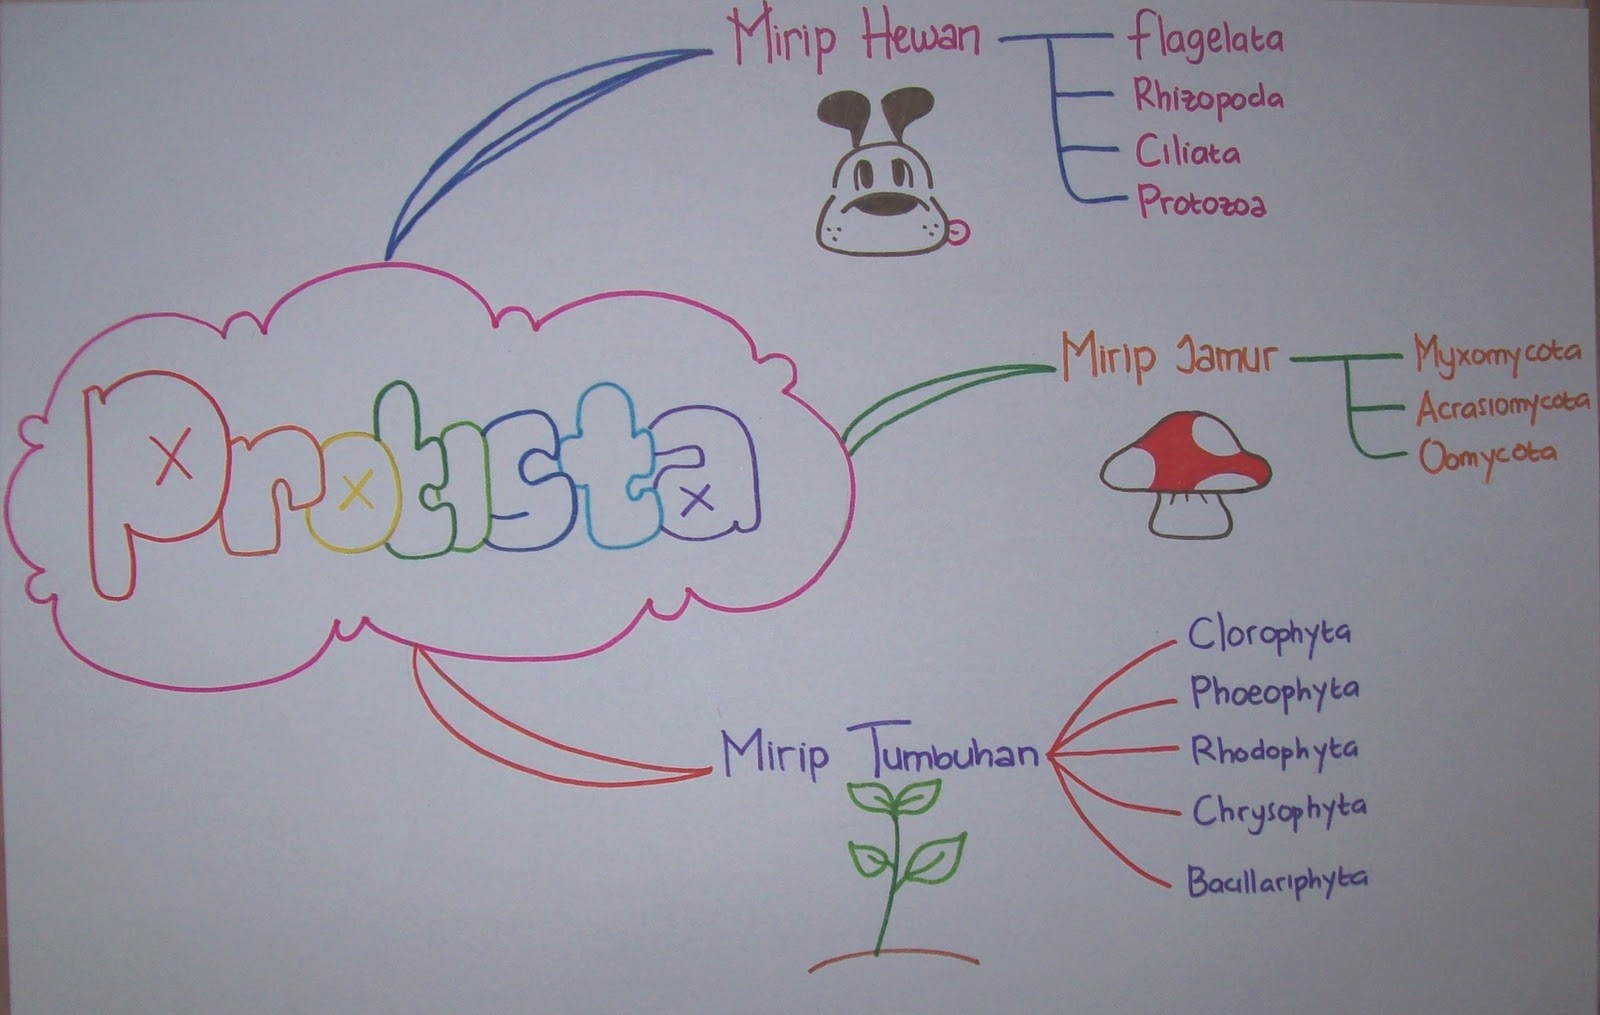 Protista
Mirip Hewan
Flagelata
Rhizopoda
Ciliata
Protozoa
Mirip Jamur
Myxomycota
Acrasiomycota
Oomycota
Mirip Tumbuhan
Clorophyta
Phoeophyta
Rhodophyta
Chrysophyta
Bacillariphyta